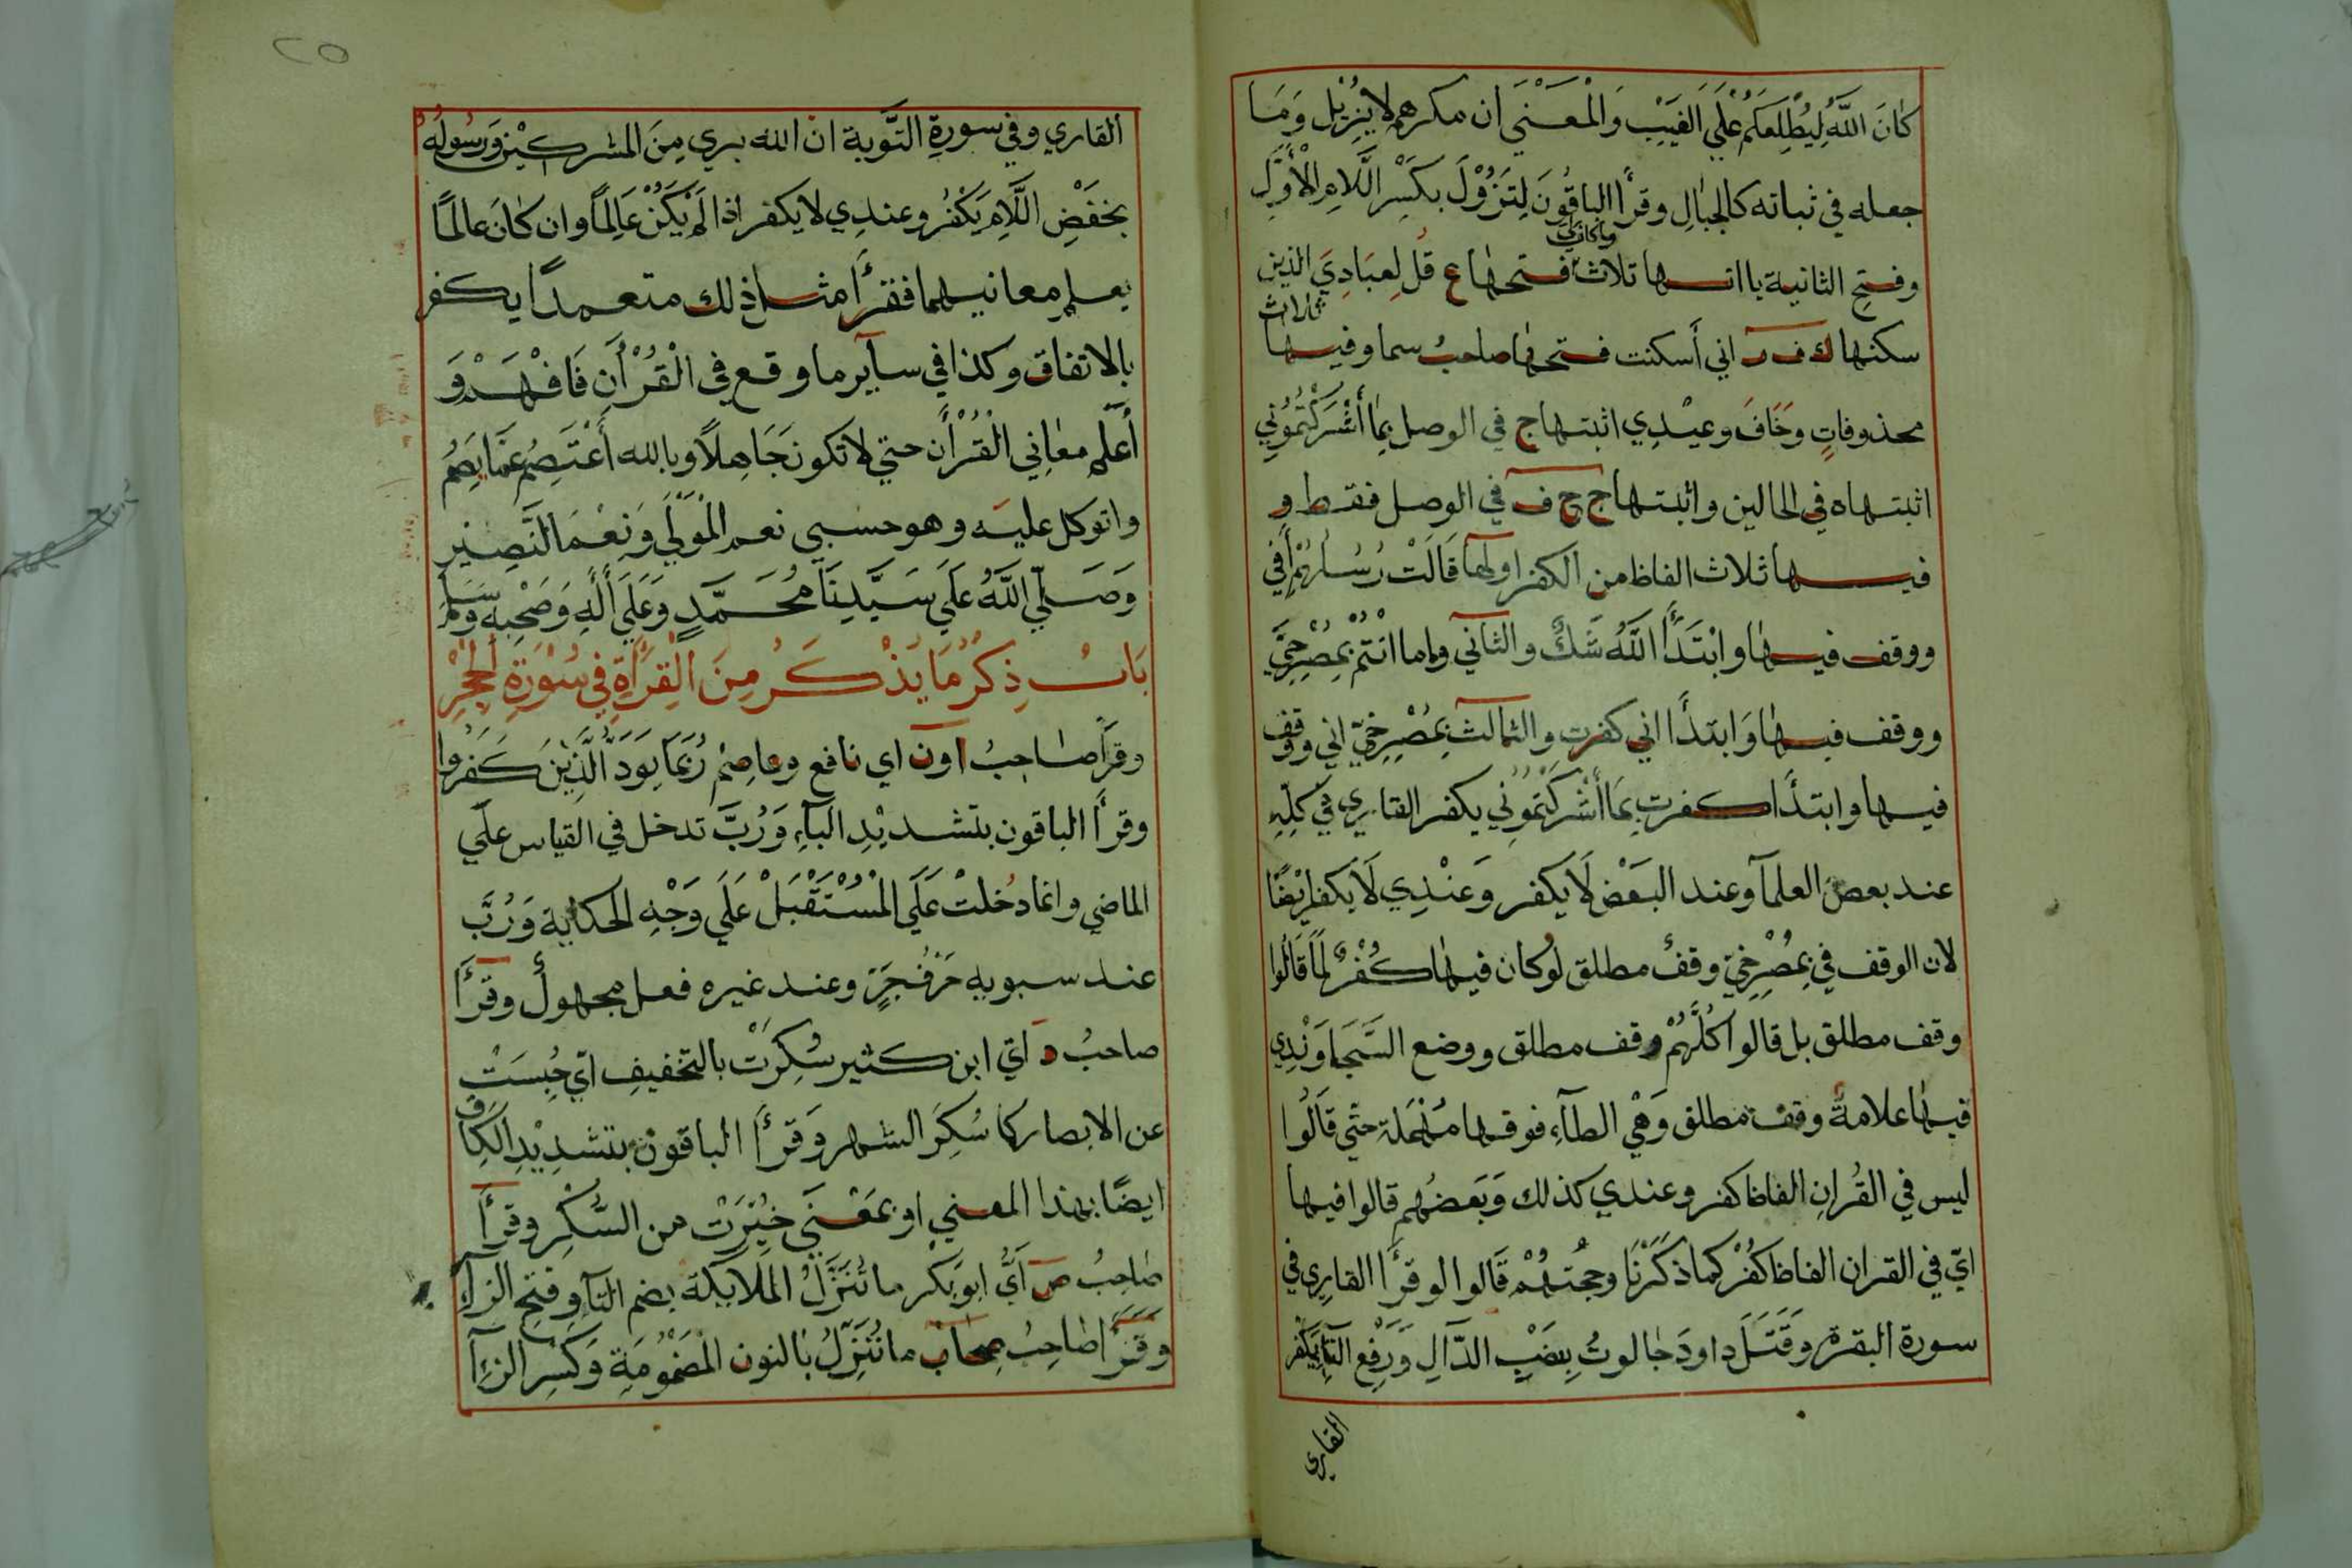 كانَ اللَّهُ لِيُطْلِعَكُمْ عَلَي الغَيْبِ وَالْمَعْنَي ان مكرهم لا يُزيل وَمَا
جعله في ثباته كالجبالِ وقرأ الباقُونَ لِتَزُوْلَ بكَسْرِ اللّامِ الْأُوْلي
وفتحِ الثانية يا اتها ثلاث وما كان لي فتحها ع قُل لِعِبَادِيَ الذين
سكنها ك ف ر اني أَسكنت فتحها صاحبُ سما وفيها ثلاث
محذوفاتٍ وَخَافَ وعيْدِي اثبتها ج في الوصل بِمَا أَشْرَكْتُمُوْنِي
اثبتها ه في الحالين واثبتها ج ح ف في الوصل فقط و
فيها ثلاث الفاظ من الكفر اولها قَالَتْ رُسُلُهُمْ أَفِي
ووقف فيها وابْتَدَأَ اللَّهُ شَكٌّ والثاني وما انْتُمْ بِمُصْرِخِيَّ
ووقف فيها وَابتدَأ اني كفرت والثالث بِمُصْرِخِيّ اني ووقف
فيها وابتدَأ كفرت بِمَا أَشْرَكْتُمُوْنِي يكفر القاري في كلِّهِ
عند بعض العلمآ وعند البَعْض لَا يكفر وَعنْدِي لَا يكفر ايْضًا
لان الوقف في بِمُصْرِخيّ وقفٌ مطلق لوكان فيها كُفْرٌ لمَا قَالُوا
وقف مطلق بل قالوا كلّهُمْ وقف مطلق ووضع السَّجَاوَنْدِي
فيها علامةُ وقف مطلق وَهْي الطآءِ فوقها مُهْمَلة حتّي قَالُوا
ليس في القُرانِ الفاظ كفر وعندي كذلك وَبَعضُهم قالوا فيها
ايّ في القران الفاظ كُفْر كما ذكَرْنَا وحجتهُمْ قَالوا لو قرَأ القارِي في
سورة البقرة وقَتَلَ داودَ جالوتُ بِنصْبِ الدّالِ وَرَفْع التَّاءِ يَكْفر
القاري
القاري وفي سورةِ التَّوبة ان الله بري مِنَ المشركيْنَ وَرسُولِهُ
بخفْضِ اللَّامِ يَكْفُر وعندِي لا يكفر اذا لَمْ يَكُنْ عَالِمًا وان كانَ عالمًا
يعلم معانيهما فقرَأ مثل ذلك متعمدًا يكفر
بالاتفاق وكذا في سآيرِ ما وقع في الْقُرْأن فَافْهَمْ وَ
أعلم معاني القُرْأن حتي لا تكون جَاهلًا وبالله أَعْتَصِمُ عمَّا يصِمُ
واتوكل عليه وهو حسبي نعم المْوَلَي وَنِعْمَ النَّصِيْرِ
وَصَلَّي اللَّهُ عَلَي سَيِّدِنَا مُحَمَّدٍ وَعَلَي أَلهِ وَصَحْبِهِ وَسَلَّم
بَابُ ذِكْرُ مَا يُذْكَرُ مِنَ الْقِرَأةِ فِي سُوْرَةِ الْحِجْرِ
وقرَأ صَاحِبُ ا ون اي نافع وعاصِمْ رُبَمَا يَوَدُّ الَّذِيْنَ كَفَرُوا
وقرَأ الباقون بتشديْدِ البآءِ وَرُبَّ تدخل في القياس علَي
الماضي وانما دُخلتْ عَلَي المُسْتَقْبَلْ عَلَي وَجْهِ الحكاية وَرُبَّ
عند سبويه حَرْفُ جَرّ وعند غيره فعل مجهول وقرَأ
صاحبُ د ايّ ابن كثير سُكِرَتْ بالتخفيفِ ايّ حُبِسَتْ
عن الابصار كما سُكِرَ النهر وَقرَأ الباقون بتشدِيْدِ الكاف
ايضًا بهذا المعني او بمَعْنَي حُيِّرَتْ من السُّكْرِ وقرَأ
صَاحِبُ ص اَيّ ابوبَكْر ما تُنَزَّلُ المَلَايكة بضم التآ وفتح الزآء
وقرَأ صَاحِبُ صحاب ما نُنَزِّلُ بالنون المَضْمُوْمَةِ وَكَسْرِ الزآء